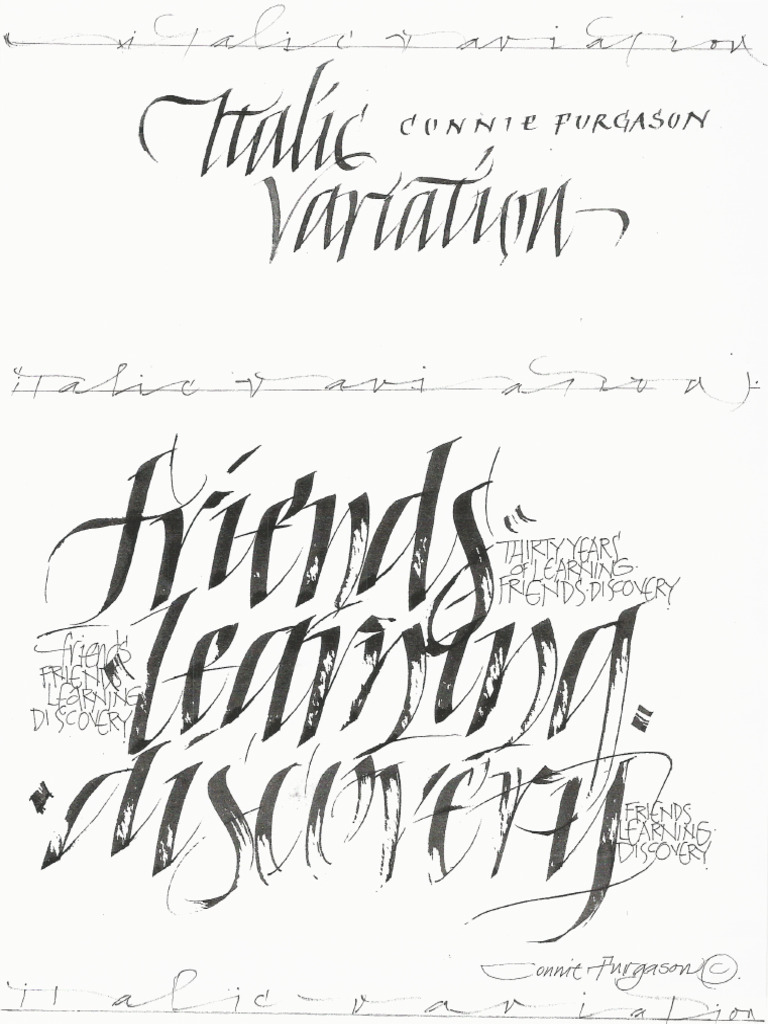 italic variation
Italic
CONNIE FURGASON
Variation
italic variation
friends
THIRTY YEARS
of LEARNING·
FRIENDS·DISCOVERY
learning
friends
FRIENDS
LEARNING
DISCOVERY
discovery
FRIENDS
LEARNING·
DISCOVERY
Connie Furgason ©
italic variation